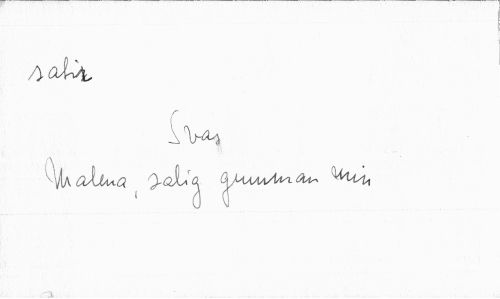 satir
Svar
Malena, salig gumman min